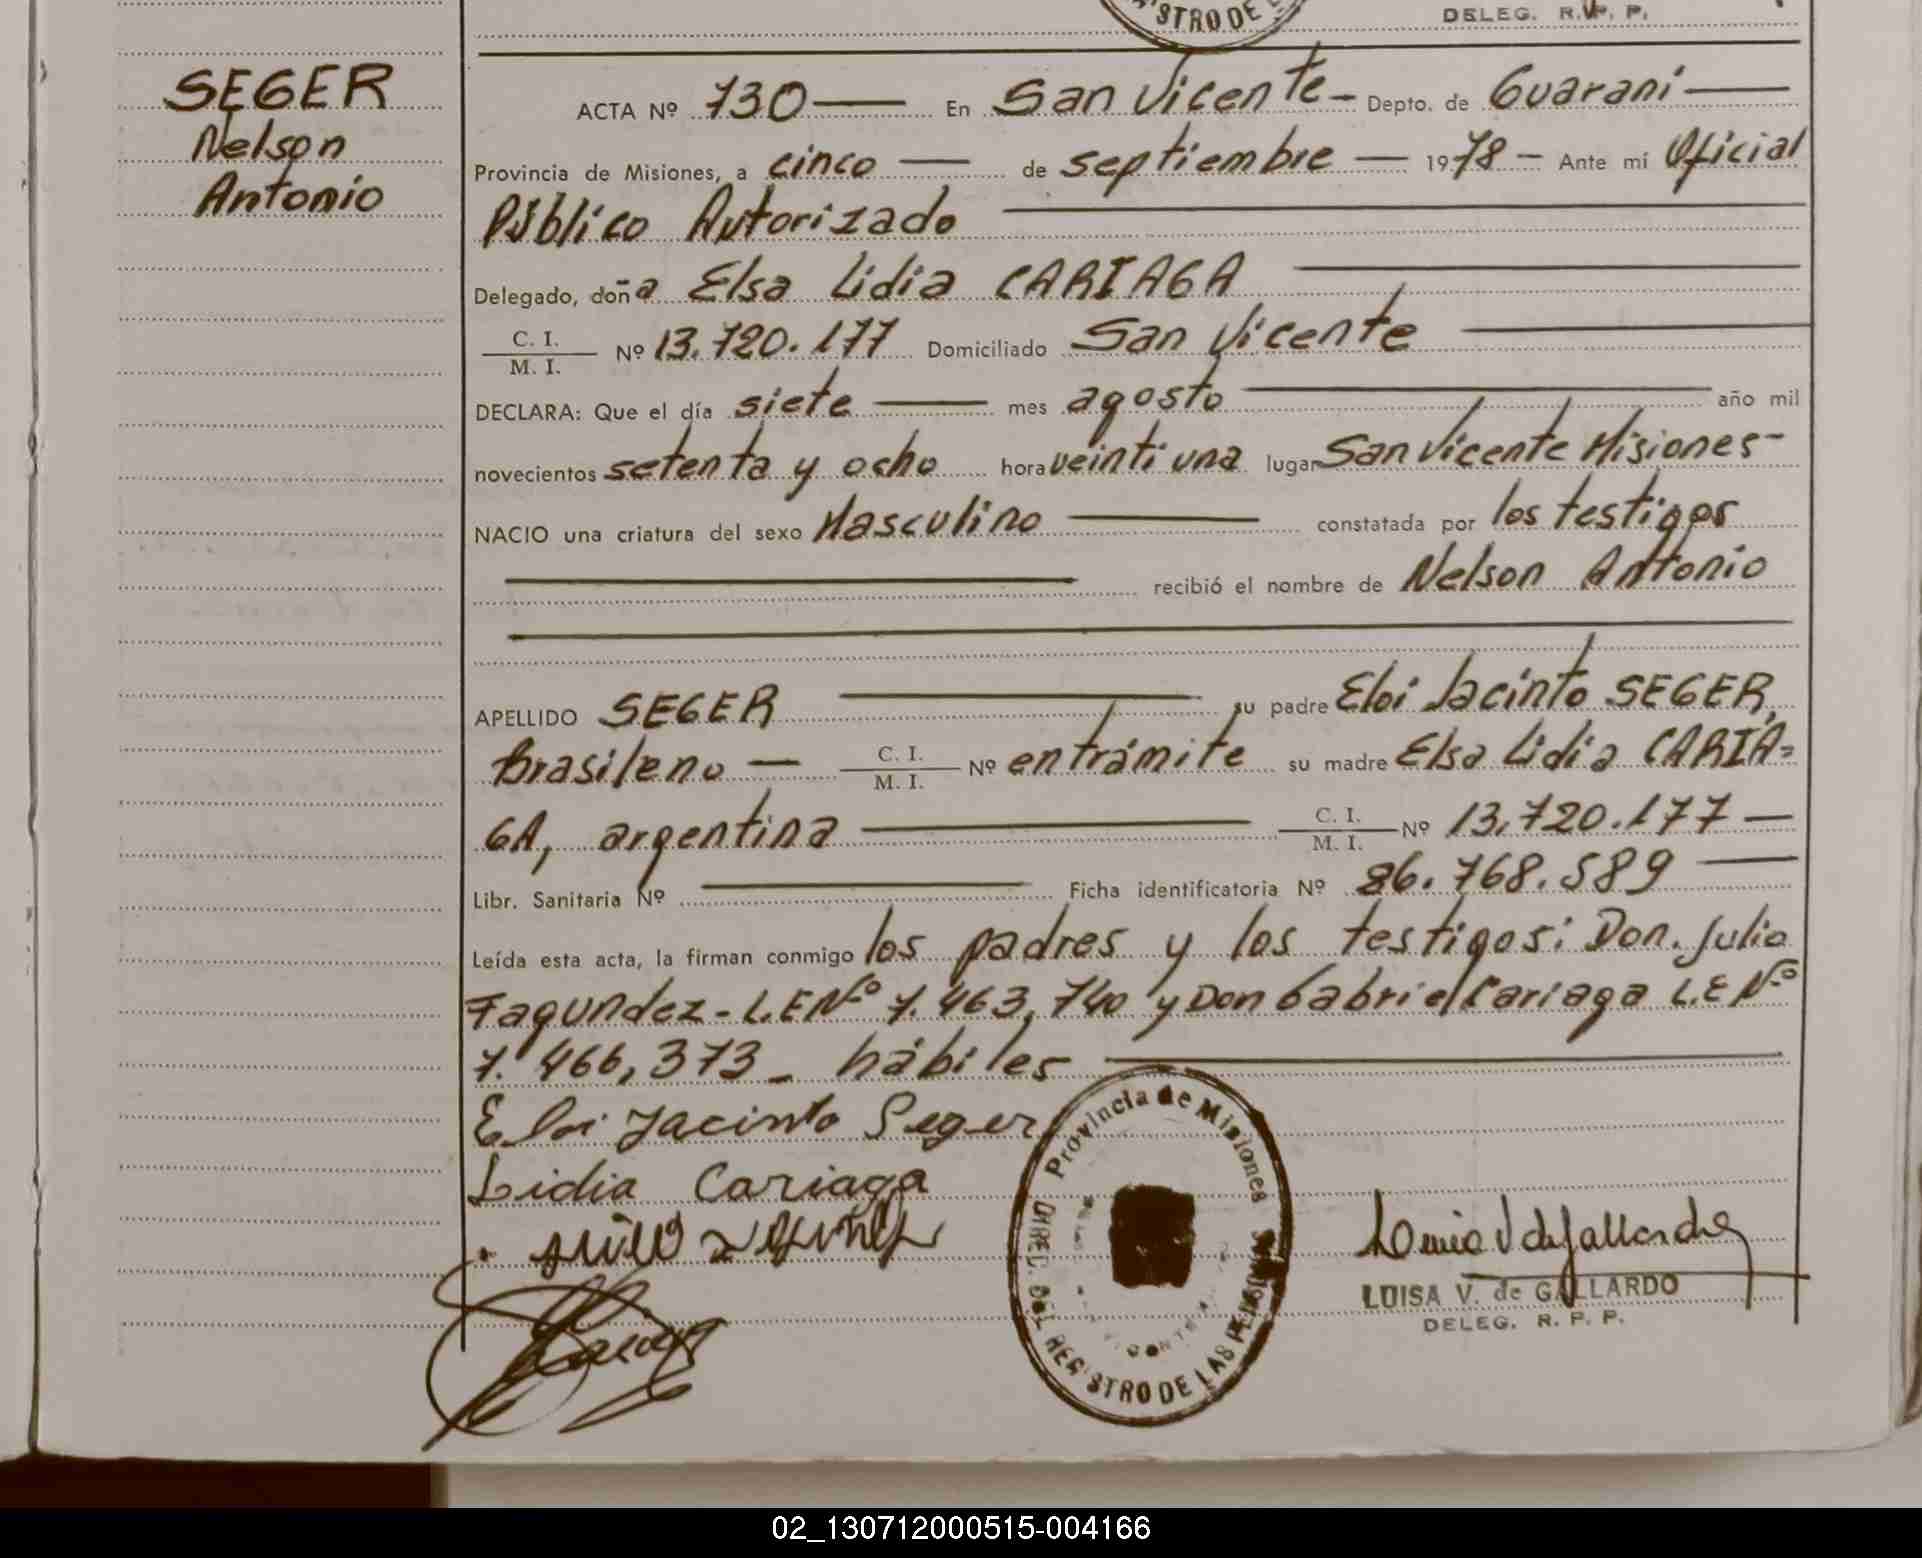 STRO DE L
DELEG. R. P. P.
SEGER
Nelson
Antonio
ACTA Nº 730 En San Vicente - Depto. de Guaraní
Provincia de Misiones, a cinco de septiembre 1978 - Ante mí Oficial
Público Autorizado
Delegado, doña Elsa Lidia CARIAGA
C. I.
M. I.
Nº 13.720.177 Domiciliado San Vicente
DECLARA: Que el día siete mes agosto año mil
novecientos setenta y ocho hora veintiuna lugar San Vicente Misiones-
NACIO una criatura del sexo Masculino constatada por los testigos
recibió el nombre de Nelson Antonio
APELLIDO SEGER su padre Eloi Jacinto SEGER,
Brasileno — C. I. M. I. Nº en trámite su madre Elsa Lidia CARIA=
GA, argentina C. I. M. I. Nº 13.720.177 —
Libr. Sanitaria Nº Ficha identificatoria Nº 26.768.589
Leída esta acta, la firman conmigo los padres y los testigos: Don. Julio
Fagundez - L.E Nº 7.463,740 y Don Gabriel Cariaga L.E Nº
7.466,373 - hábiles
Eloi Jacinto Seger
Lidia Cariaga
Provincia de Misiones
DIREC. DEL REGISTRO DE LAS PERSONAS
LUISA V. de GALLARDO
DELEG. R. P. P.
02_130712000515-004166